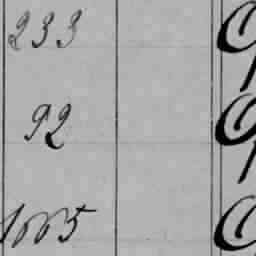 233
92
1005